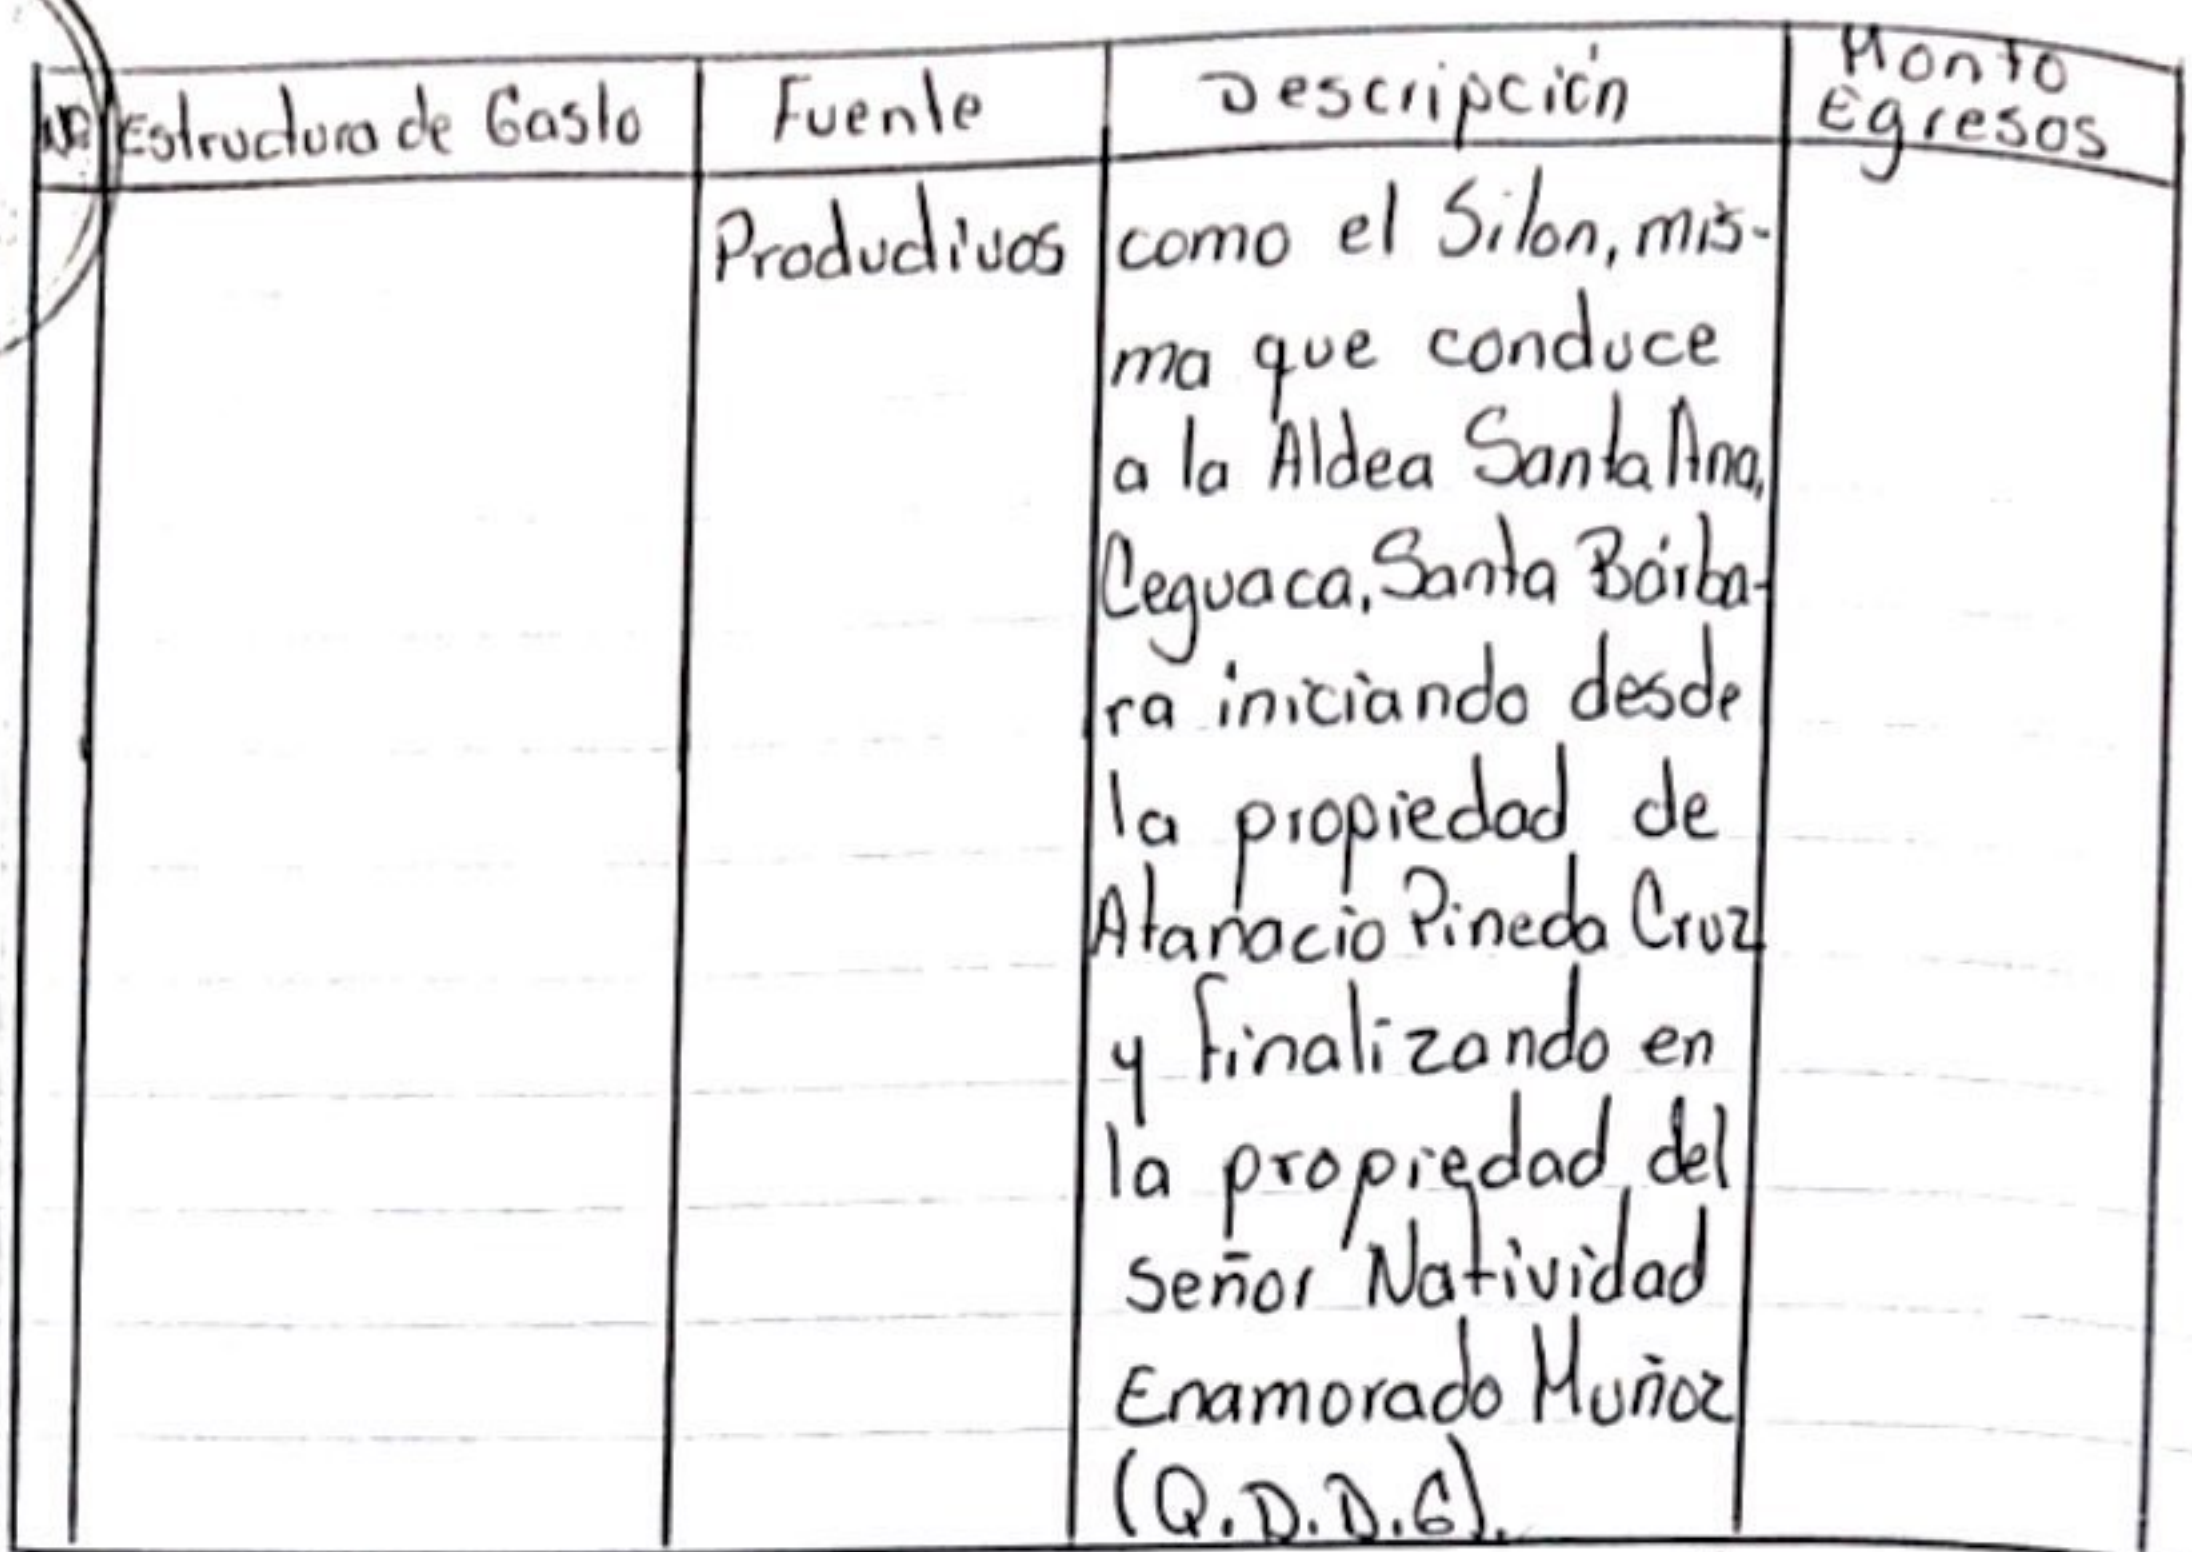 Nº Estructura de Gasto Fuente Descripción Monto Egresos
Productivos como el Silon, mis-
ma que conduce
a la Aldea Santa Ana,
Ceguaca, Santa Bárba-
ra iniciando desde
la propiedad de
Atanacio Pineda Cruz
y finalizando en
la propiedad del
Señor Natividad
Enamorado Muñoz
(Q.D.D.G).